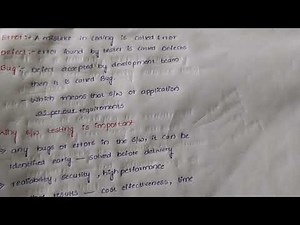 Error :- A mistake in coding is called Error
Defect :- Error found by tester is called Defects
Bug :- Defect accepted by development team
then it is called Bug
- Which means that S/W or application
as per our requirements
Why S/W testing is important
→ any bugs or errors in the S/W, it can be
identified early — solved before delivery
→ realiability, security, high performance
results — cost effectiveness, time